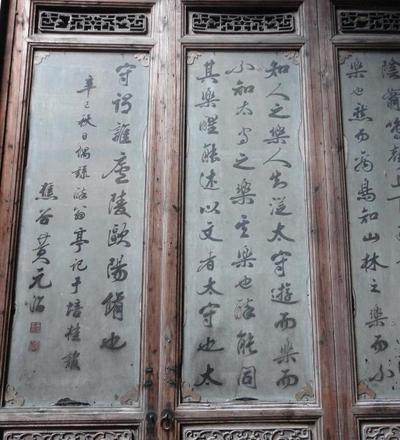 陰翳鳴聲上下
樂也然而禽鳥知山林之樂而不
知人之樂人知從太守遊而樂而
不知太守之樂其樂也醉能同
其樂醒能述以文者太守也太
守謂誰廬陵歐陽脩也
辛巳秋日偶録醉翁亭記于培桂館
樵谷黄元治